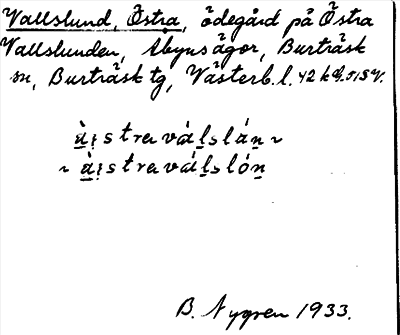 Vallslund, Östra, ödegård på Östra
Vallslunden, Åbyns ägor, Burträsk
sn, Burträsk tg, Västerb. l. 42 k
ä̱i̯stravá́ḻsláṉ ~
~ ä̱i̯straváḻslóṉ
B. Nygren 1933.